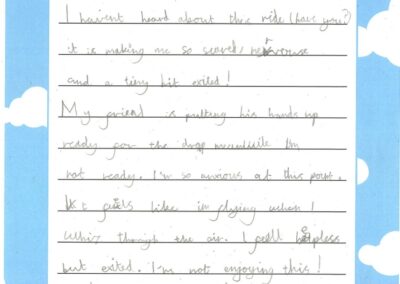 I havent heard about this ride (have you?)
it is making me so scared, nervouse
and a tiny bit exited!
My friend is putting his hands up
ready for the drop meanwhile I'm
not ready. I'm so anxious at this point.
It feels like im flying when I
whiz through the air. I feel
but exited. I'm not enjoying this!